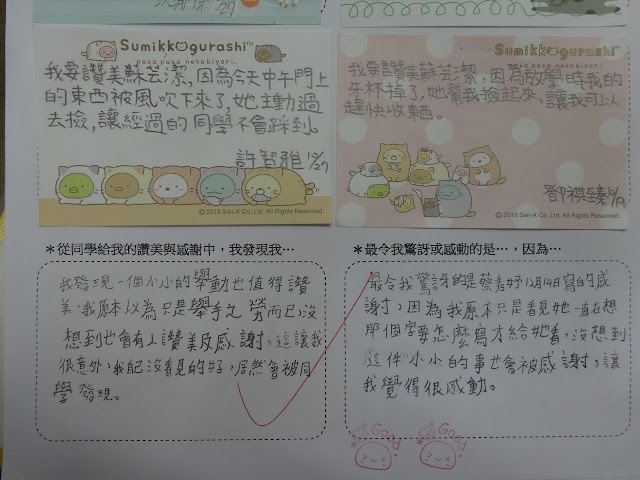 27
Sumikkogurashi™
neko biyori.
我要讚美蘇芸潔,因為今天中午門上
的東西被風吹下來了,她主動過
去撿,讓經過的同學不會踩到。
許智雅 12/27
© 2018 San-X Co., Ltd. All Rights Reserved.
Sumikkogurashi™
neko biyori.
我要讚美蘇芸潔,因為放學時我的
牙杯掉了,她幫我撿起來,讓我可以
趕快收東西。
鄧祺臻
© 2018 San-X Co., Ltd. All Rights Reserved.
*從同學給我的讚美與感謝中,我發現我…
我發現一個小小的舉動也值得讚
美,我原本以為只是舉手之勞而已,沒
想到也會有人讚美及感謝,這讓我
很意外,我自己沒看見的好,居然會被同
學發現。
*最令我驚訝或感動的是…,因為…
最令我驚訝的是蔡 12月14日寫的感
謝,因為我原本只是看見她一直在想
那個字要怎麼寫才給她看,沒想到
這件小小的事也會被感謝,讓
我覺得很感動。
Good
Good